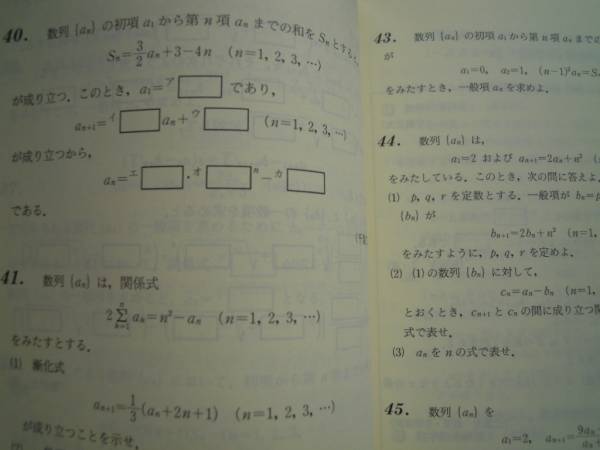 40. 数列 {aₙ} の初項 a₁ から第 n 項 aₙ までの和を Sₙ とする
Sₙ=3/2 aₙ+3−4n (n=1, 2, 3, …)
が成り立つ．このとき，a₁=ア□ であり，
aₙ₊₁=イ□ aₙ+ウ□ (n=1, 2, 3, …)
が成り立つから，
aₙ=エ□・オ□ⁿ−カ□
である．
41. 数列 {aₙ} は，関係式
2Σₖ₌₁ⁿ aₖ=n²−aₙ (n=1, 2, 3, …)
をみたすとする．
(1) 漸化式
aₙ₊₁=1/3(aₙ+2n+1) (n=1, 2, 3, …)
が成り立つことを示せ．
43. 数列 {aₙ} の初項 a₁ から第 n 項 aₙ までの
が
a₁=0, a₂=1, (n−1)²aₙ=S
をみたすとき，一般項 aₙ を求めよ．
44. 数列 {aₙ} は，
a₁=2 および aₙ₊₁=2aₙ+n²
をみたしている．このとき，次の問に答えよ．
(1) p, q, r を定数とする．一般項が bₙ=p
{bₙ} が
bₙ₊₁=2bₙ+n² (n=1,
をみたすように，p, q, r を定めよ．
(2) (1)の数列 {bₙ} に対して，
cₙ=aₙ−bₙ (n=1,
とおくとき，cₙ₊₁ と cₙ の間に成り立つ関
式で表せ．
(3) aₙ を n の式で表せ．
45. 数列 {aₙ} を
a₁=2, aₙ₊₁=9aₙ